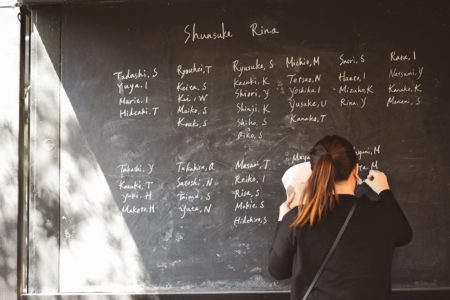 Shunsuke Rina
Tadashi, S
Yuya, I
Marie, I
Hidemi, T
Ryouhei, T
Keira, S
Kai, W
Maiko, S
Kouki, S
Ryusuke, S
Kazuki, K
Shiori, Y
Shinji, K
Shiho, S
Riko, S
Michio, M
Tetsuo, N
Yoshika, I
Yusaku, U
Kanako, T
Saori, S
Mizuki, K
Rina, Y
Natsumi, Y
Kanako, K
Manami, S
Takashi, Y
Kazuki, T
Yuki, H
Makoto, N
Takahiro, A
Satoshi, N
Taiga, S
Yuta, N
Masami, T
Reiko, I
Risa, S
Makie, S
Hidehiro, S